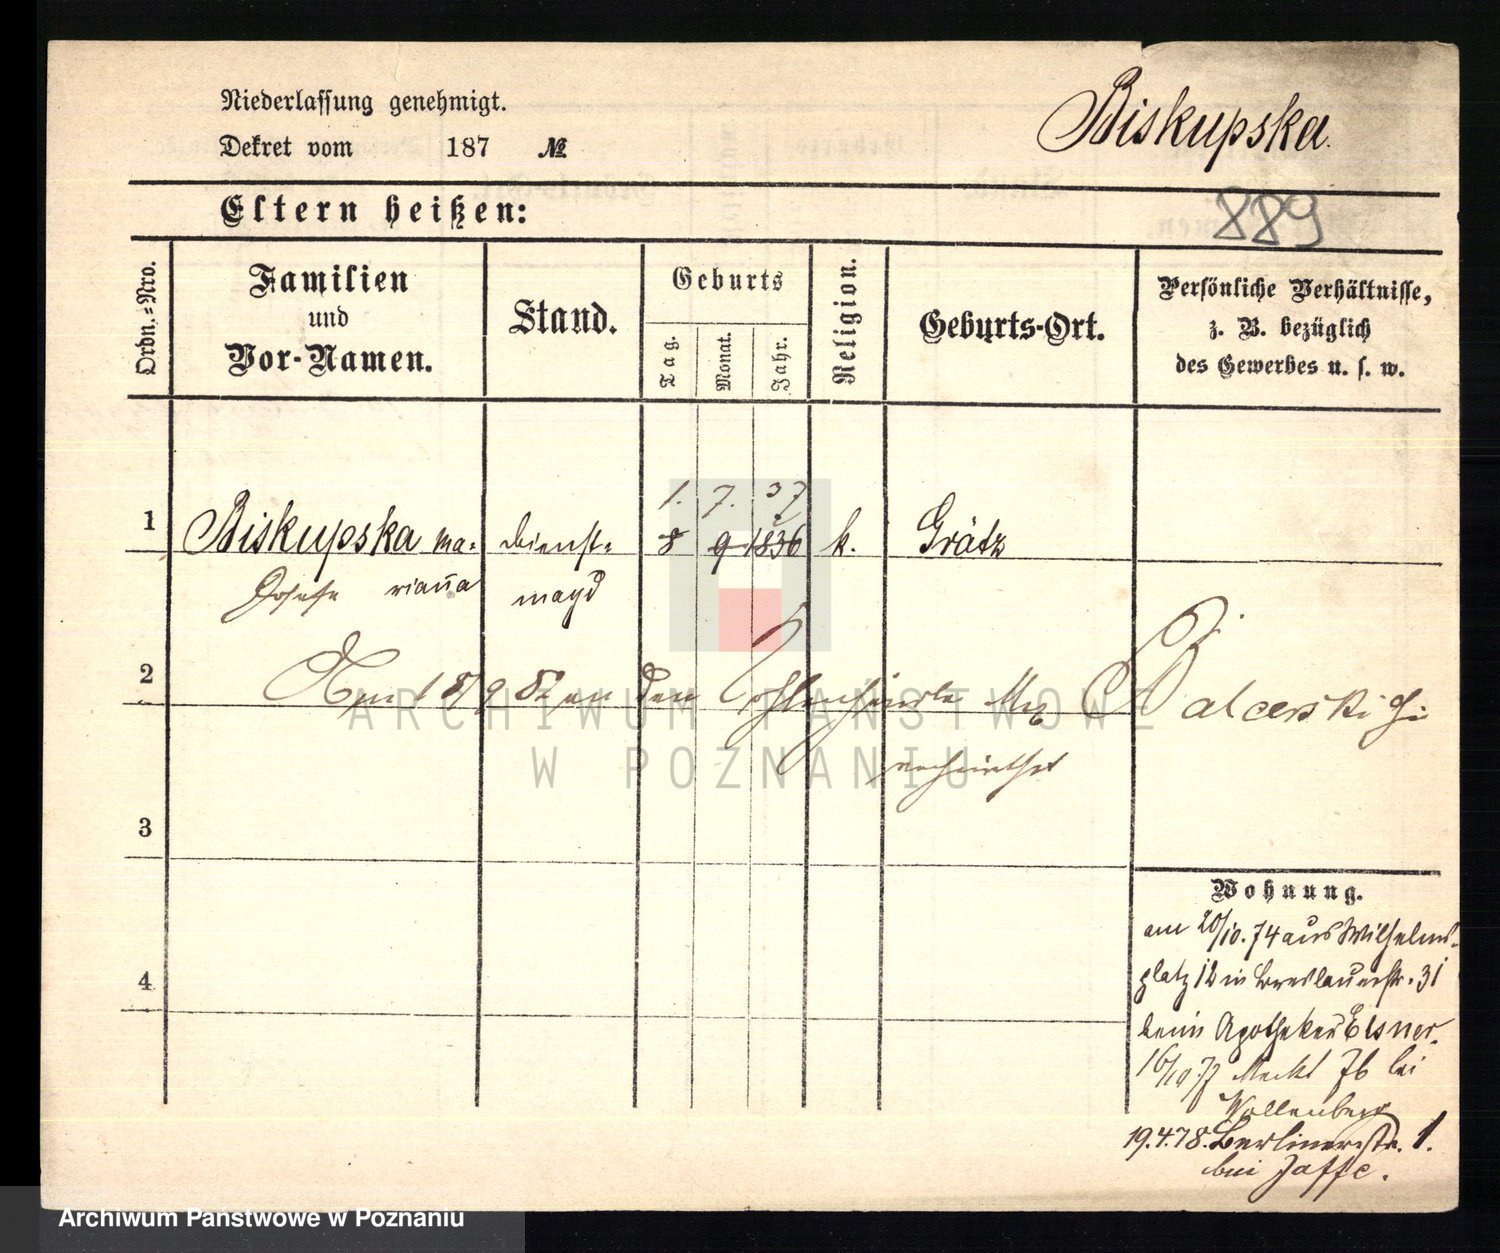 Niederlassung genehmigt.
Dekret vom 187 №
Biskupska.
Eltern heißen:
889
Ordn.=Nro.
Familien
und
Vor-Namen.
Stand.
Geburts
Tag.
Monat.
Jahr.
Religion.
Geburts-Ort.
Persönliche Verhältnisse,
z. B. bezüglich
des Gewerbes u. s. w.
1. 7. 37
1 Biskupska Ma= Dienst= 8 9 1836 k. Grätz
Josefa rianna magd
2
den Balcerski
verheirathet
3
Wohnung.
am 20/10.74 aus Wilhelms-
platz 12 in Breslauerstr. 31
beim Apotheker Elsner.
4
16/10 77 Markt 76 bei
Wollenberg
19.4.78. Berlinerstr. 1.
bei Jaffe.
ARCHIWUM PAŃSTWOWE
W POZNANIU
Archiwum Państwowe w Poznaniu